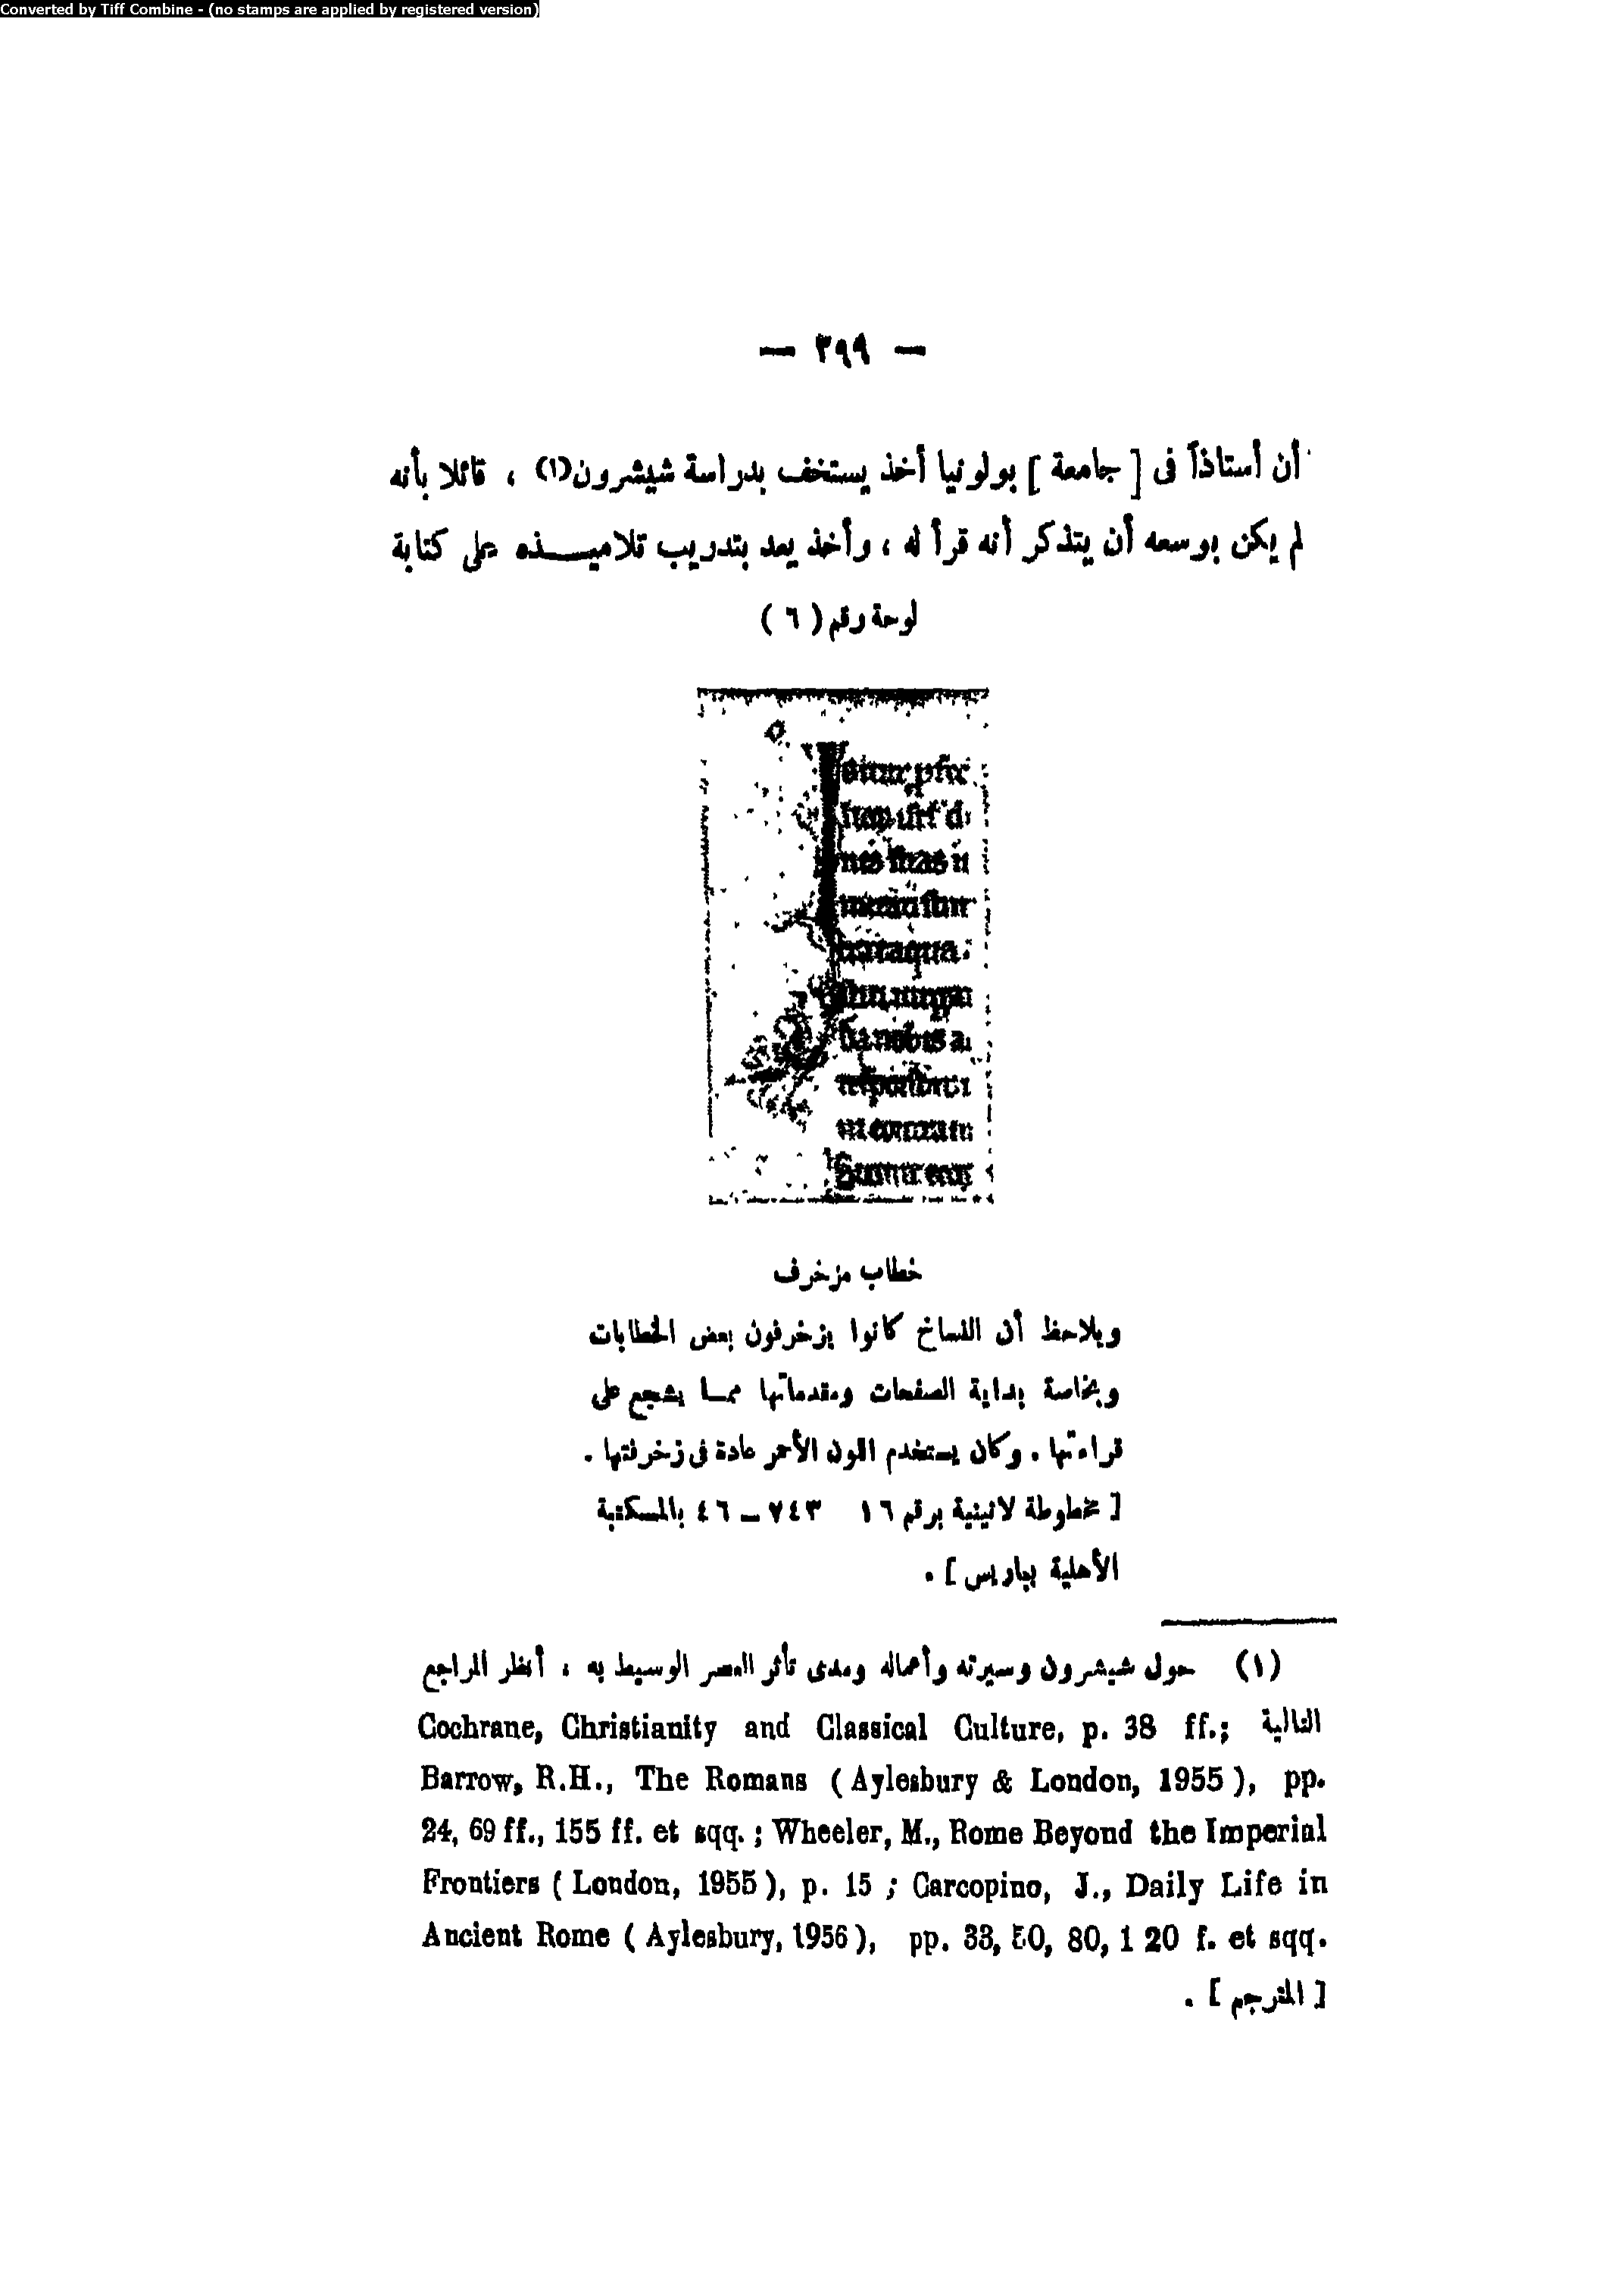 Converted by Tiff Combine - (no stamps are applied by registered version)
— ٣٩٩ —
أن أستاذاً فى [ جامعة ] بولونيا أخذ يستخف بدراسة شيشرون(١) ، قائلا بأنه
لم يكن بوسعه أن يتذكر أنه قرأ له ، وأخذ يعد بتدريب تلاميــذه على كتابة
لوحة رقم ( ٦ )
خطاب مزخرف
ويلاحظ أن النساخ كانوا يزخرفون بعض الخطابات
وبخاصة بداية الصفحات ومقدماتها ممـا يشجع على
قراءتها . وكان يستخدم اللون الأحمر عادة فى زخرفتها .
[ مخطوطة لاتينية برقم ١٦ ٧٤٣ – ٤٦ بالمكتبة
الأهلية بباريس ] .
(١) حول شيشرون وسيرته وأعماله ومدى تأثر العصر الوسيط به ، أنظر المراجع
التالية Cochrane, Christianity and Classical Culture, p. 38 ff.;
Barrow, R.H., The Romans ( Aylesbury & London, 1955 ), pp.
24, 69 ff., 155 ff. et sqq. ; Wheeler, M., Rome Beyond the Imperial
Frontiers ( London, 1955 ), p. 15 ; Carcopino, J., Daily Life in
Ancient Rome ( Aylesbury, 1956 ), pp. 33, 50, 80, 1 20 f. et sqq.
[ المترجم ] .